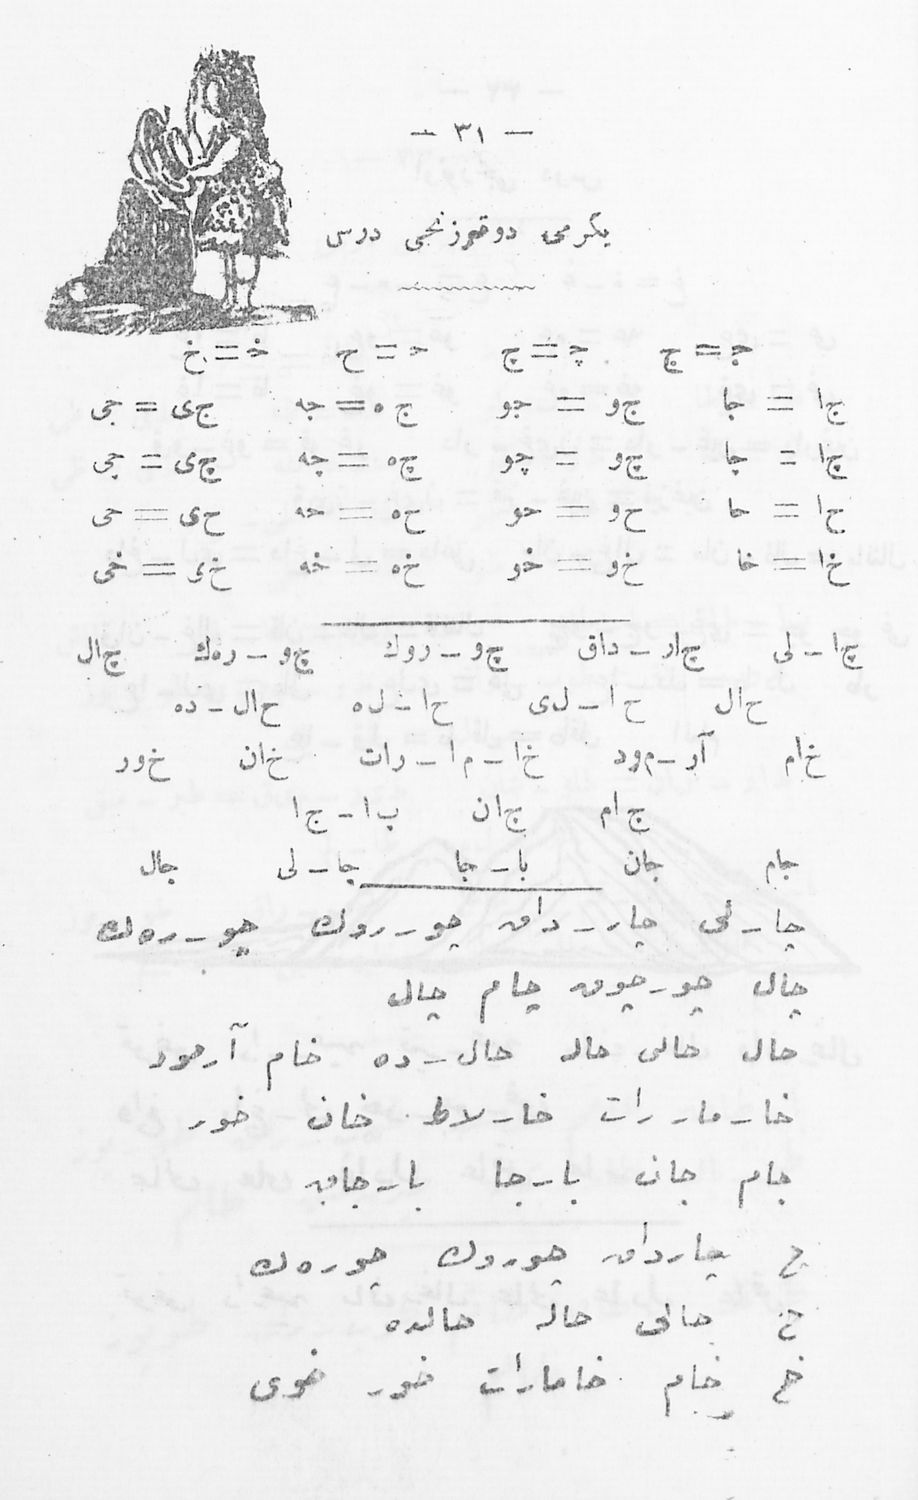 — ٣١ —
یگرمی دوقوزنجی درس
جـ = ج چـ = چ حـ = ح خـ = خ
ج‌ا = جا ج‌و = جو ج‌ه = جه ج‌ی = جی
چ‌ا = چا چ‌و = چو چ‌ه = چه چ‌ی = چی
ح‌ا = حا ح‌و = حو ح‌ه = حه ح‌ی = حی
خ‌ا = خا خ‌و = خو خ‌ه = خه خ‌ی = خی
چ‌ا - لی چ‌ار - داق چ‌و - روك چ‌و - ره‌ك چ‌ال
ح‌ال ح‌ا - ل‌ی ح‌ا - ل‌ه ح‌ال - ده
خ‌ام آر - م‌ود خ‌ا - م‌ا - رات خ‌ان خ‌ور
ج‌ام ج‌ان ب‌ا - ج‌ا
جام جان با - جا چا - لی چال
چا - لی چار - داق چو - روك چو - ره‌ك
چال چور چوق چام چال
حال حالی حاله حال - ده خام آرمود
خا - ما - رات خا - لاط خان خور
جام جان با - جا با - جاق
چ چارداق چوروك چوره‌ك
ح حالی حاله حالده
خ خام خامارات خور خوی